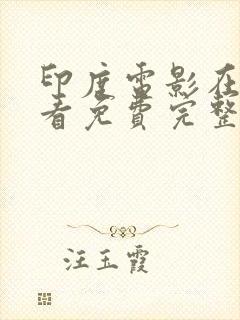 印度电影在
看免费完整
汪玉霞